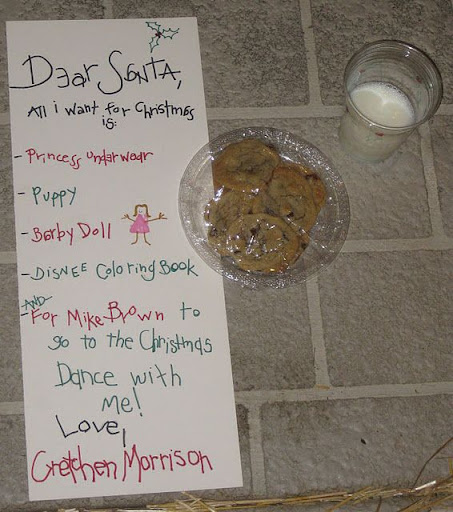 Dear SENTA,
All i want for Christmes
is:
- Princess undarwear
- Puppy
- Barby Doll
- DISNEE Coloring Book
-AND-
- For Mike Brown to
go to the Christmas
Dance with
me!
Love,
Gretchen Morrison